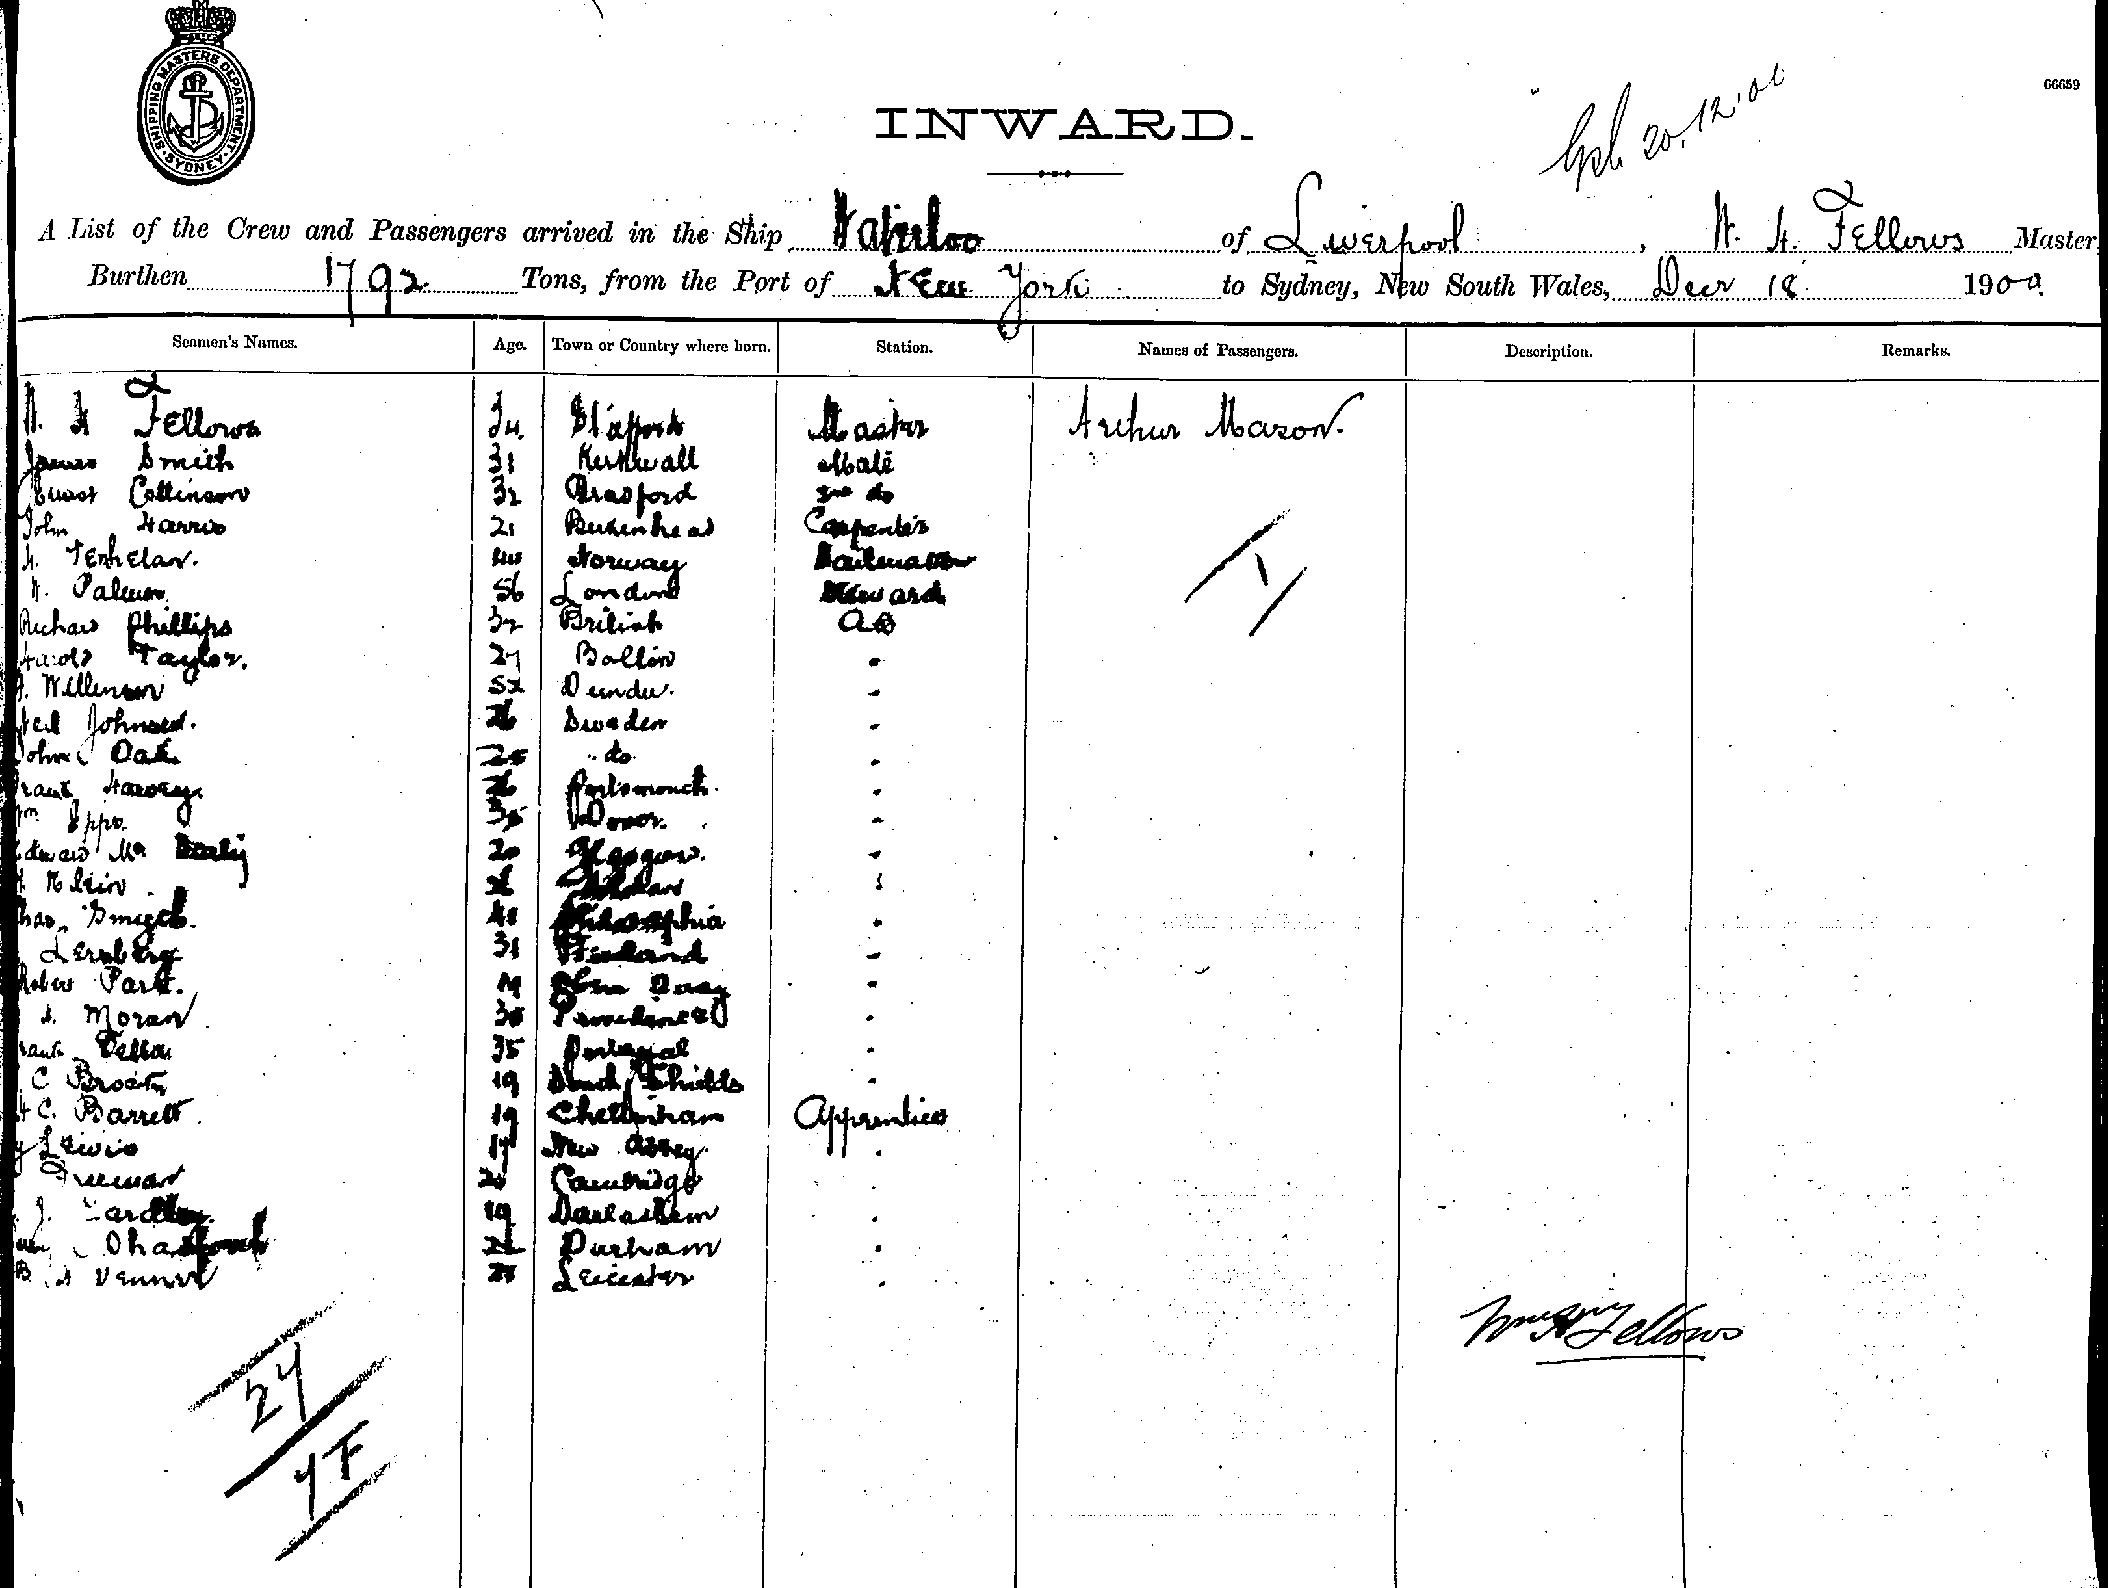 SHIPPING MASTERS DEPARTMENT · SYDNEY ·
66659
20.12.00
INWARD.
A List of the Crew and Passengers arrived in the Ship Waterloo of Liverpool, W. H. Fellows Master
Burthen 1792 Tons, from the Port of New York to Sydney, New South Wales, Decr 18 1900
Seamen's Names. Age. Town or Country where born. Station. Names of Passengers. Description. Remarks.
W. H Fellows 34 Stafford Master Arthur Mason.
James Smith 31 Kirkwall Mate
Ernest Collinson 32 Bradford 2nd do
John Harris 21 Birkenhead Carpenter
Norway Sailmaker
W. Palmer 56 London Steward
Richard Phillips 32 British AB
Harold Taylor. 27 "
52 Dundee. "
Neil Johnson. 26 Sweden "
John Oak 25 " do "
Frank Harvey 26 Portsmouth. "
Wm Epps. 35 Dover. "
Edward Mc 20 Glasgow. "
26 "
Chas. 41 Philadelphia "
31 Finland "
Robert Park. 19 "
Moran 30 Providence "
Frank 35 Portugal "
C 19 South Shields "
H C. Barrett 19 Cheltenham Apprentice
Lewis 17 New Abbey "
Freeman Cambridge "
J. Yardley. 19 Darlaston "
Durham "
B H Venner Leicester "
1
27
7F
Wm Hy Fellows